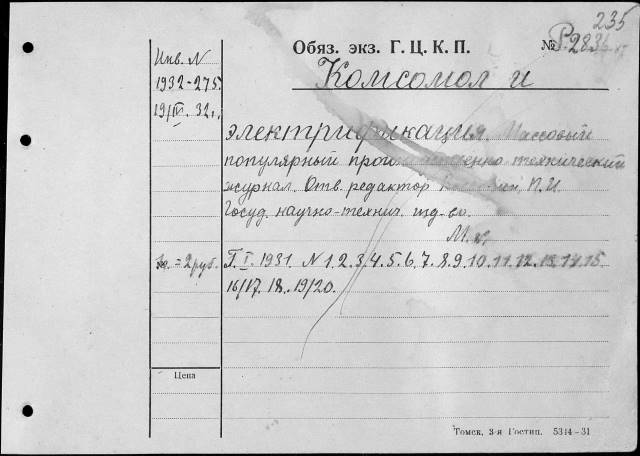 235
Обяз. экз. Г. Ц. К. П. №
Инв. N Комсомол и
1932-275.
19/IV. 32г.
электрификация. Массовый
популярный производственно-технический
журнал. Отв. редактор П. И.
Госуд. научно-технич. изд-во.
М.
= 2 руб. Г. I. 1931. N 1. 2. 3. 4. 5. 6. 7. 8. 9. 10. 11. 12. 13. 14. 15.
16/17. 18. 19/20.
Цена
Томск, 3-я Гостип. 5314-31